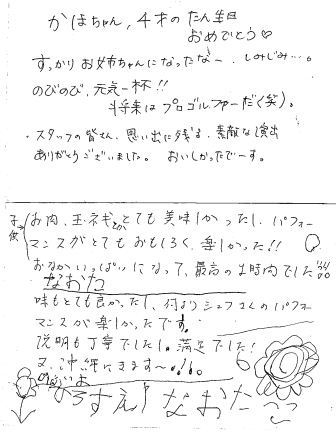 かほちゃん、4才のたん生日
おめでとう♡
すっかりお姉ちゃんになったなー、しみじみ…。
のびのび、元気一杯!!
将来はプロゴルファーだ(笑)。
・スタッフの皆さん、思い出に残る、素敵な演出
ありがとうございました。おいしかったでーす。
子供
お肉、玉ネギとかとても美味しかったし、パフォー
マンスがとてもおもしろく、楽しかった!!
おなかいっぱいになって、最高の1時間でした
なおた
味もとても良かったし、何よりシェフさんのパフォー
マンスが楽しかったです。
説明も丁寧でしたし。満足でした!
又、沖縄にきます〜。
なおた